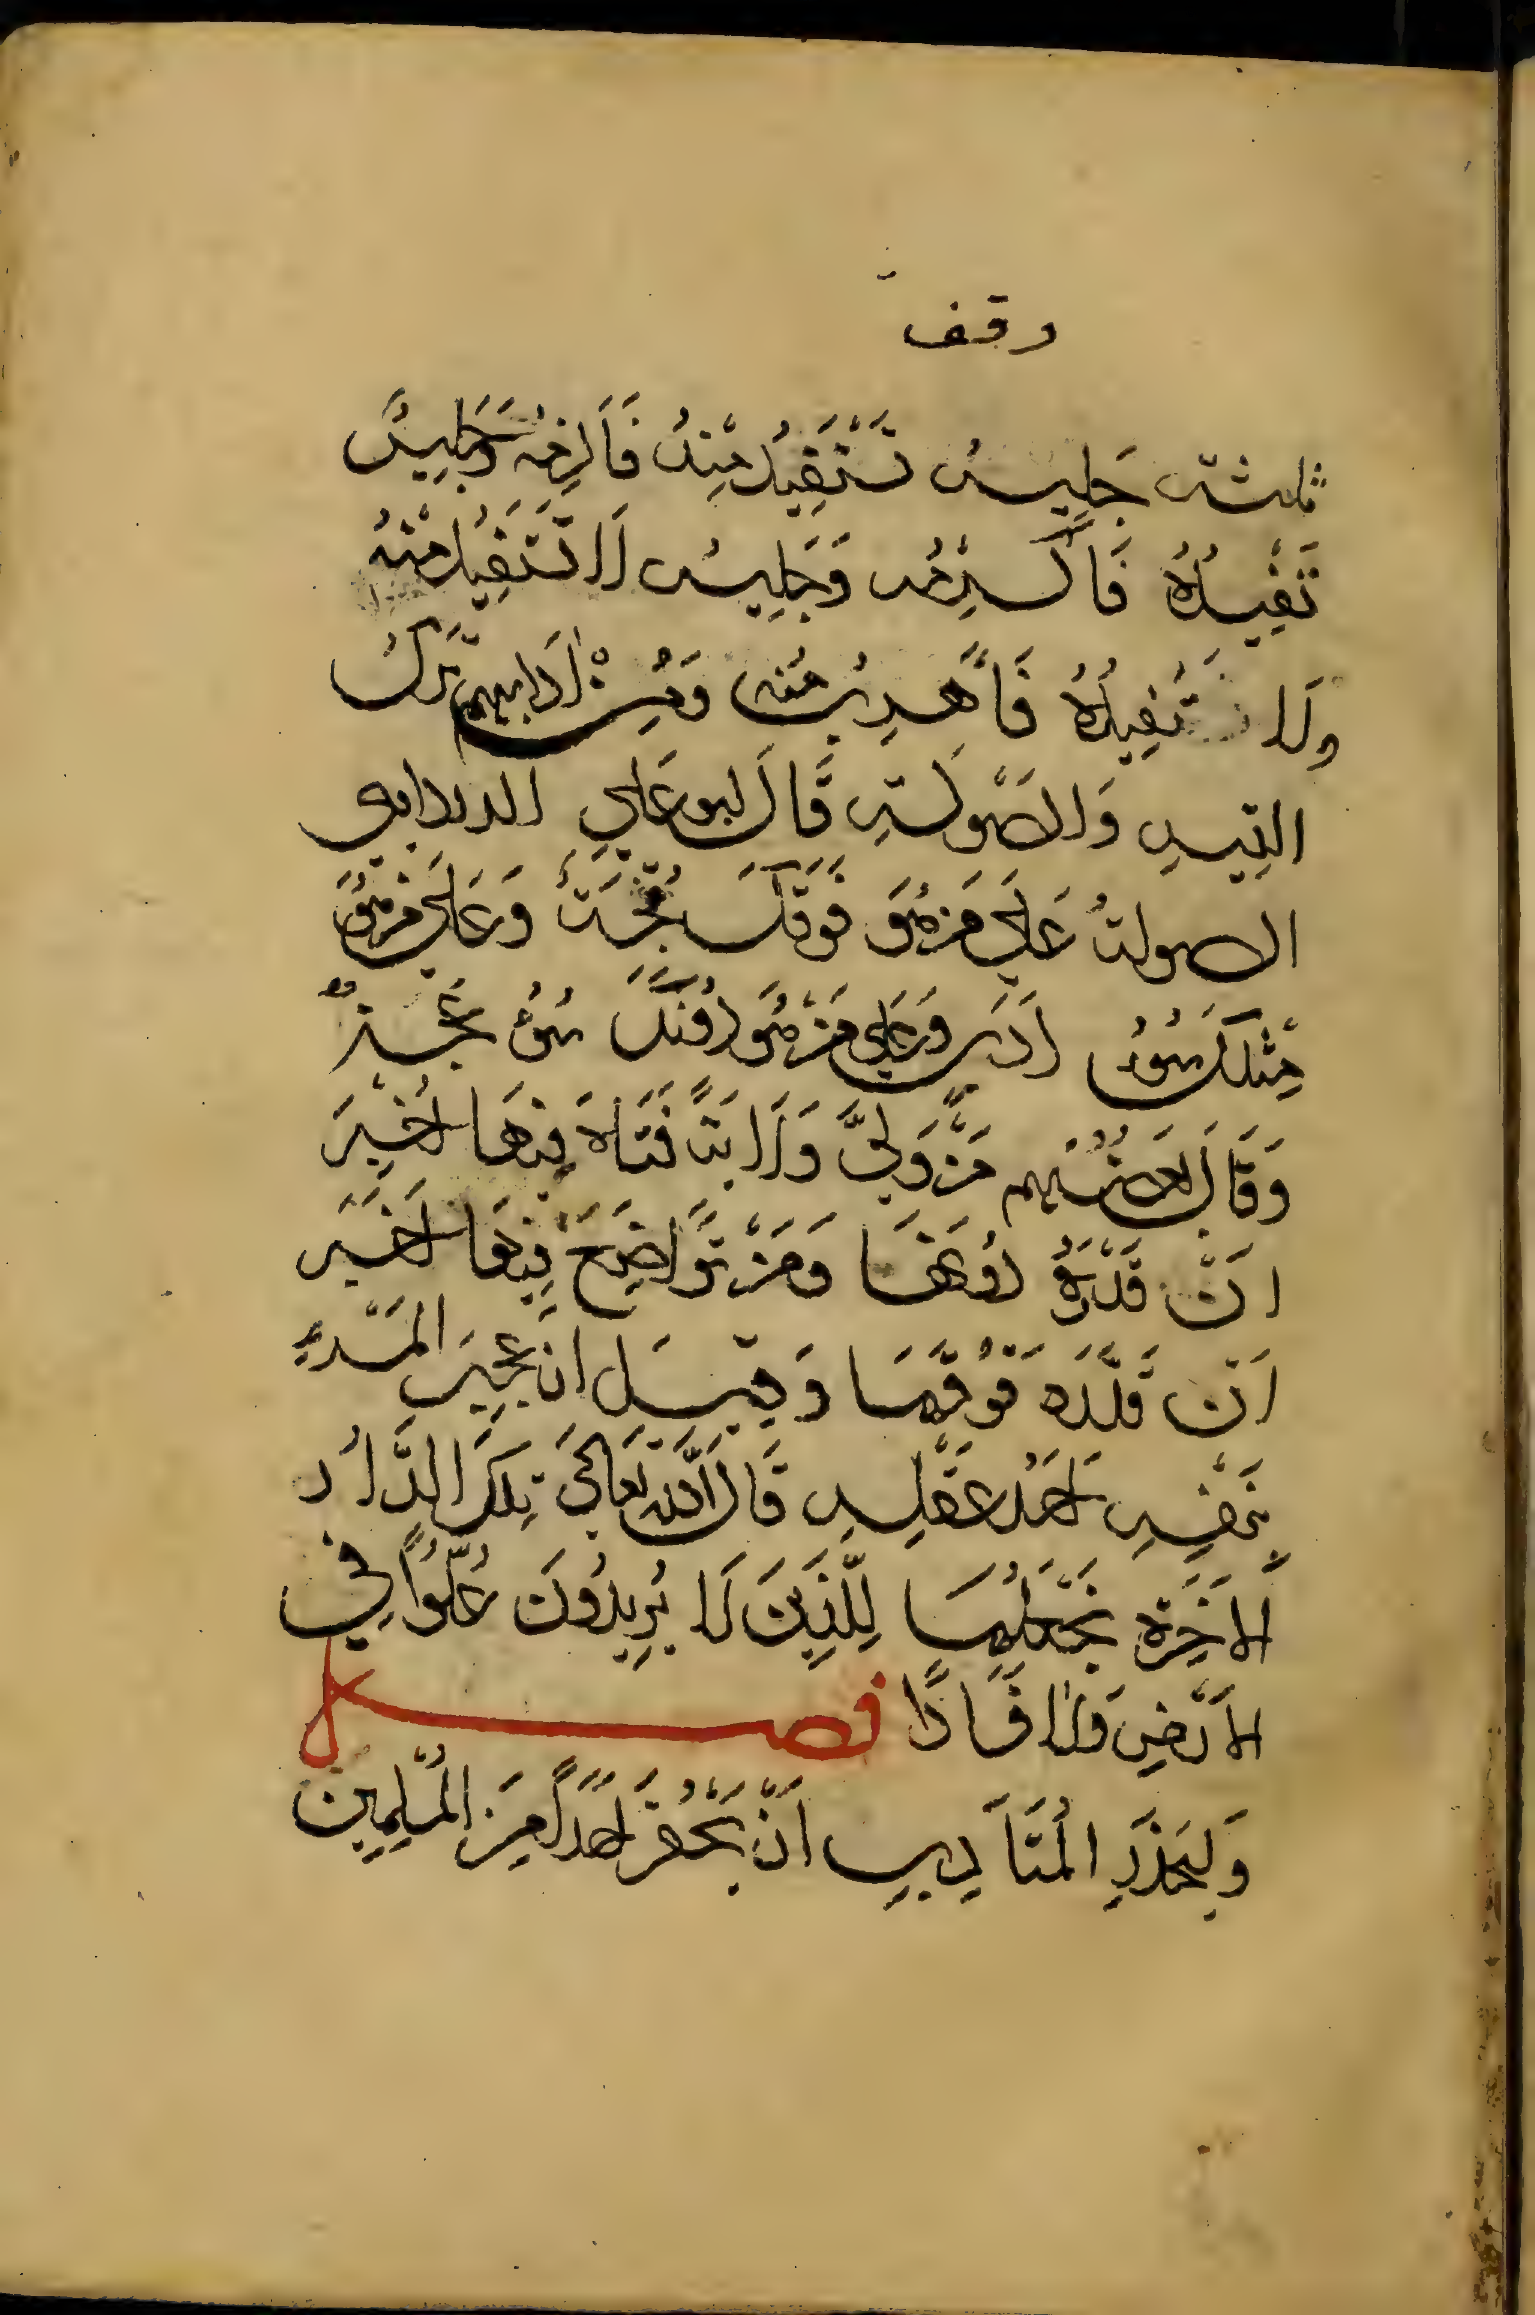 وقف
ثلاثة جَلِيسٌ تَسْتَفِيدُ مِنْهُ فَالزِمْهُ وَجَلِيسٌ
تَفِيدُهُ فَأَكْرِمْهُ وَجَلِيسٌ لَا تَسْتَفِيدُ مِنْهُ
وَلَا تُفِيدُهُ فَأَهْرِبْ مِنْهُ وَمِنْ آدَابِهِم تَرْكُ
التِيهِ وَالصَّوْلَةِ قَالَ أبو عَلِي الروذباري
الصولةُ عَلَى مَن هُوَ فَوْقَكَ قِحَةٌ وَعَلَى مَن هُوَ
مِثْلَكَ سُوءُ أَدَبٍ وَعَلَى مَنْ هُوَ دُونَكَ عَجْزٌ
وَقَالَ بَعْضُهُم مَنْ وَلِيَ وَلَايَةً فَتَاهَ فِيهَا أُخْبِرَ
أَنَّ قَدْرَهُ دُونَهَا وَمَنْ تَوَاضَعَ فِيهَا أَخْبَرَ
أَنَّ قَدْرَهُ فَوْقَهَا وَقِيلَ انَ عُجْبَ المَرْءِ
بِنَفْسِهِ أَحَدُ عَقْلِهِ قَالَ اللّٰه تَعَالَى تِلْكَ الدَّارُ
الآخِرَة نَجْعَلُهَا لِلَّذِينَ لَا يُرِيدُونَ عُلُوًّا فِي
الأَرْضِ وَلَا فَسَادًا فصل
وَلْيَحْذَرِ المُتَأَدِبِ أَنْ يَحْقُرَ أَحَدًا مِنَ المُسْلِمِينَ